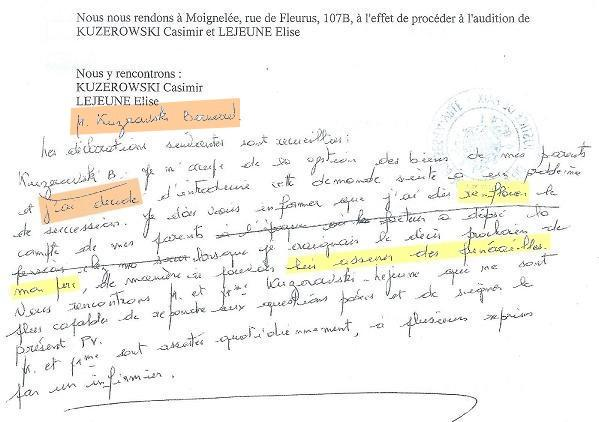 Nous nous rendons à Moignelée, rue de Fleurus, 107B, à l'effet de procéder à l'audition de
KUZEROWSKI Casimir et LEJEUNE Elise
Nous y rencontrons :
KUZEROWSKI Casimir
LEJEUNE Elise
M. Kuzerowski Bernard.
Les déclarations suivantes sont recueillies:
Kuzerowski B. Je m'occupe de la gestion des biens de mes parents
et j'ai décidé d'introduire cette demande suite à un problème
de succession. Je dois vous informer que j'ai dû renflouer le
compte de mes parents à l'époque où le facteur a déposé la
pension chez ma soeur lorsque je craignais le décès prochain de
mon père, de manière à pouvoir lui assurer des funérailles.
Nous rencontrons M. et Mme Kuzerowski-Lejeune qui ne sont
plus capables de répondre aux questions posées et de signer le
présent PV.
M. et Mme sont assistés quotidiennement, à plusieurs reprises
par un infirmier.